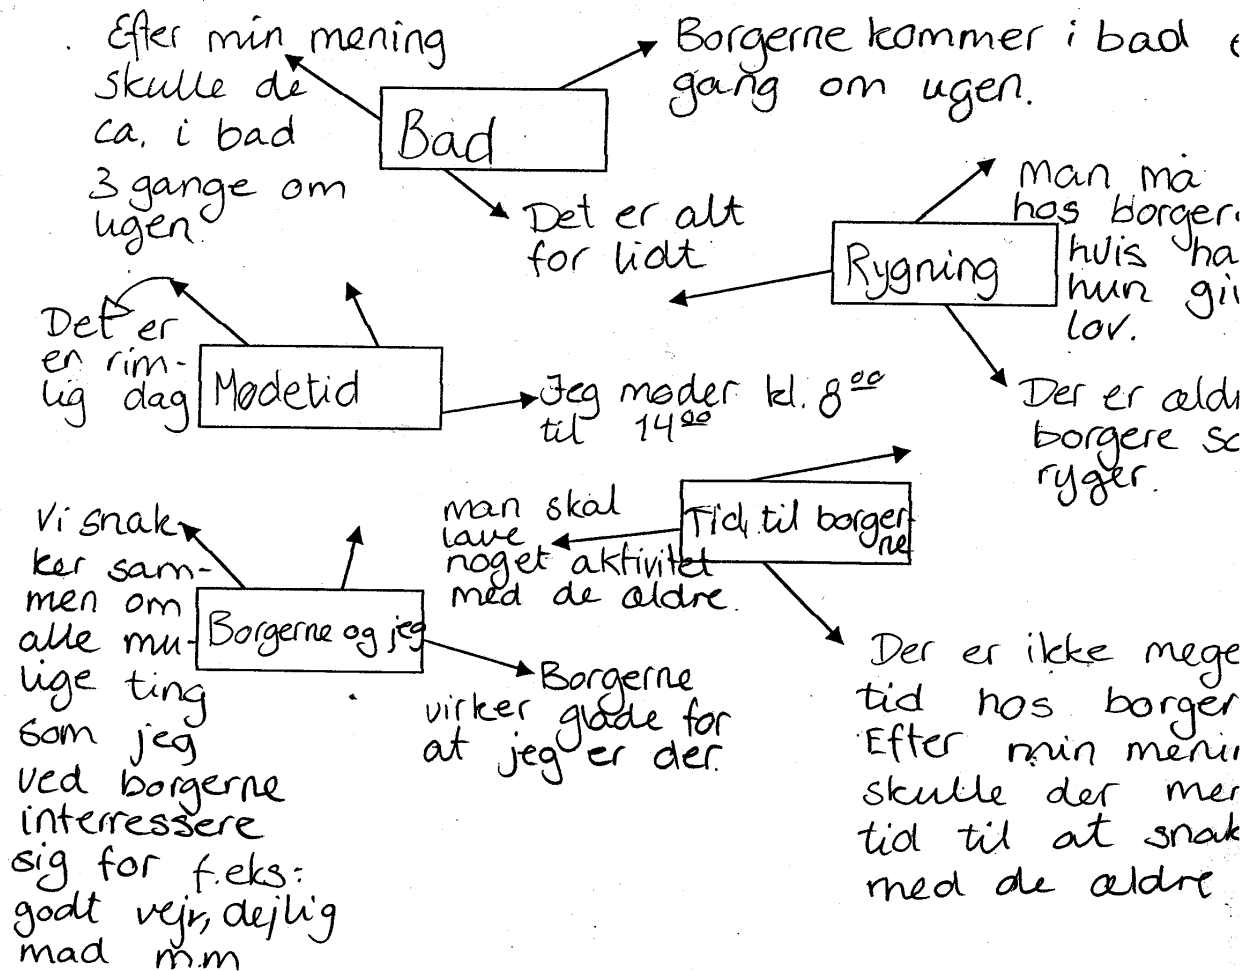 Efter min mening
skulle de
ca. i bad
3 gange om
ugen.
Bad
Borgerne kommer i bad
gang om ugen.
Det er alt
for lidt
Rygning
Man må
hos
hvis
hun
lov.
Der er
borgere
ryger.
Mødetid
Det er
en rim-
lig dag
Jeg møder kl. 8 00
til 14 00
Tid til borger-
ne
man skal
lave
noget aktivitet
med de ældre.
Der er ikke
tid hos
Efter min
skulle der
tid til at
med de ældre
Borgerne og jeg
Vi snak-
ker sam-
men om
alle mu-
lige ting
som jeg
ved borgerne
interressere
sig for f.eks:
godt vejr, dejlig
mad m.m
Borgerne
virker glade for
at jeg er der.